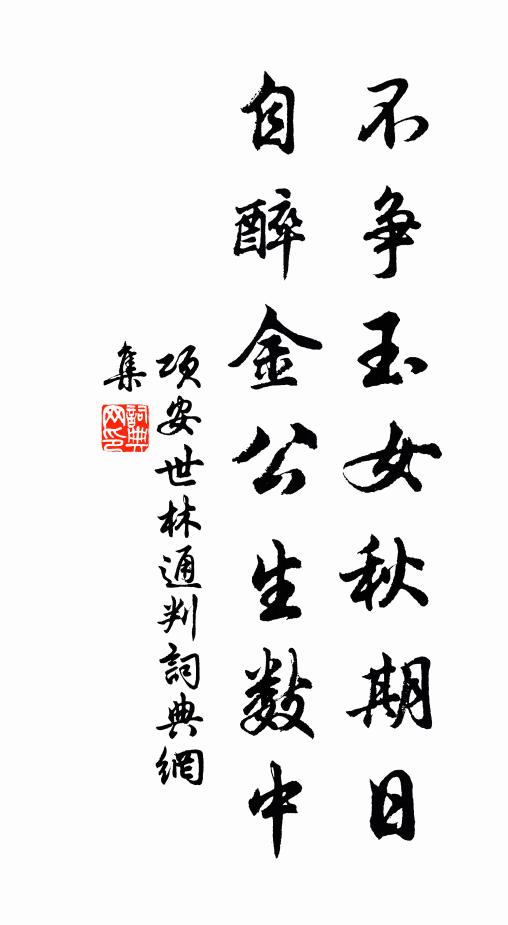 不争玉女秋期日
自醉金公生数中
项安世林通判詞典網
集
詞典网印